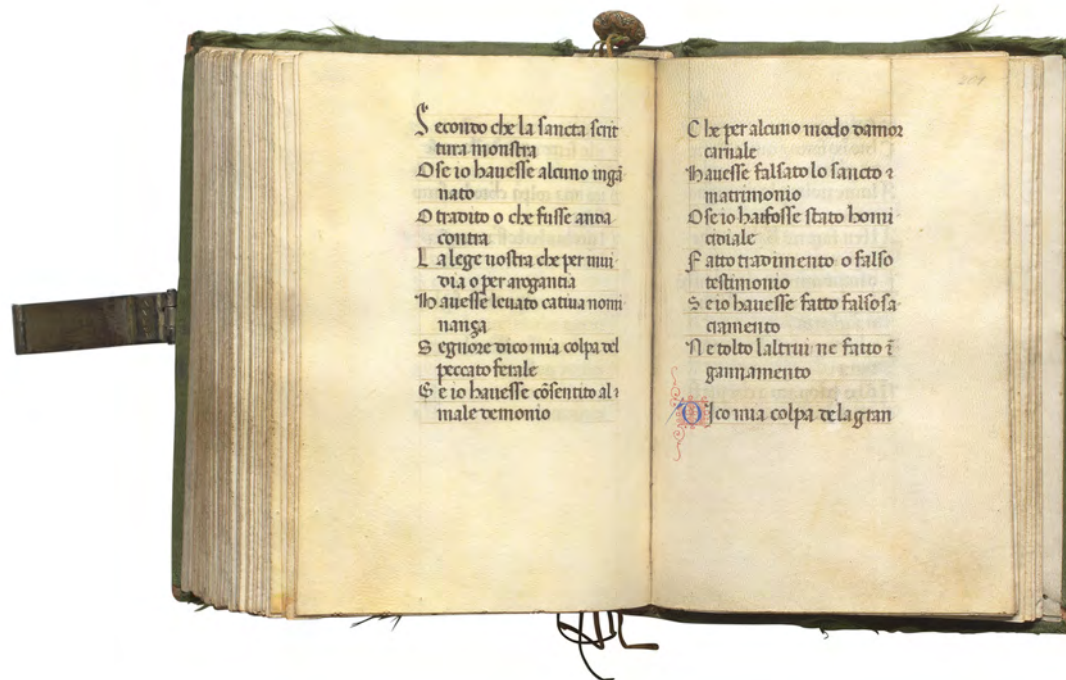 Secondo che la sancta scrit
tura monstra
O se io havesse alcuno ingā
nato
O tradito o che fusse anda
contra
La lege vostra che per invi
dia o per arogantia
Havesse levato cativa nomi
nanza
Segnore dico mia colpa del
peccato ferale
Se io havesse cōsentito al
male demonio
201
Che per alcuno modo damor
carnale
Havesse falsato lo sancto
matrimonio
O se io fosse stato homi
cidiale
Fatto tradimento o falso
testimonio
Se io havesse fatto falso sa
cramento
Ne tolto laltrui ne fatto ī
gannamento
Dico mia colpa dela gran